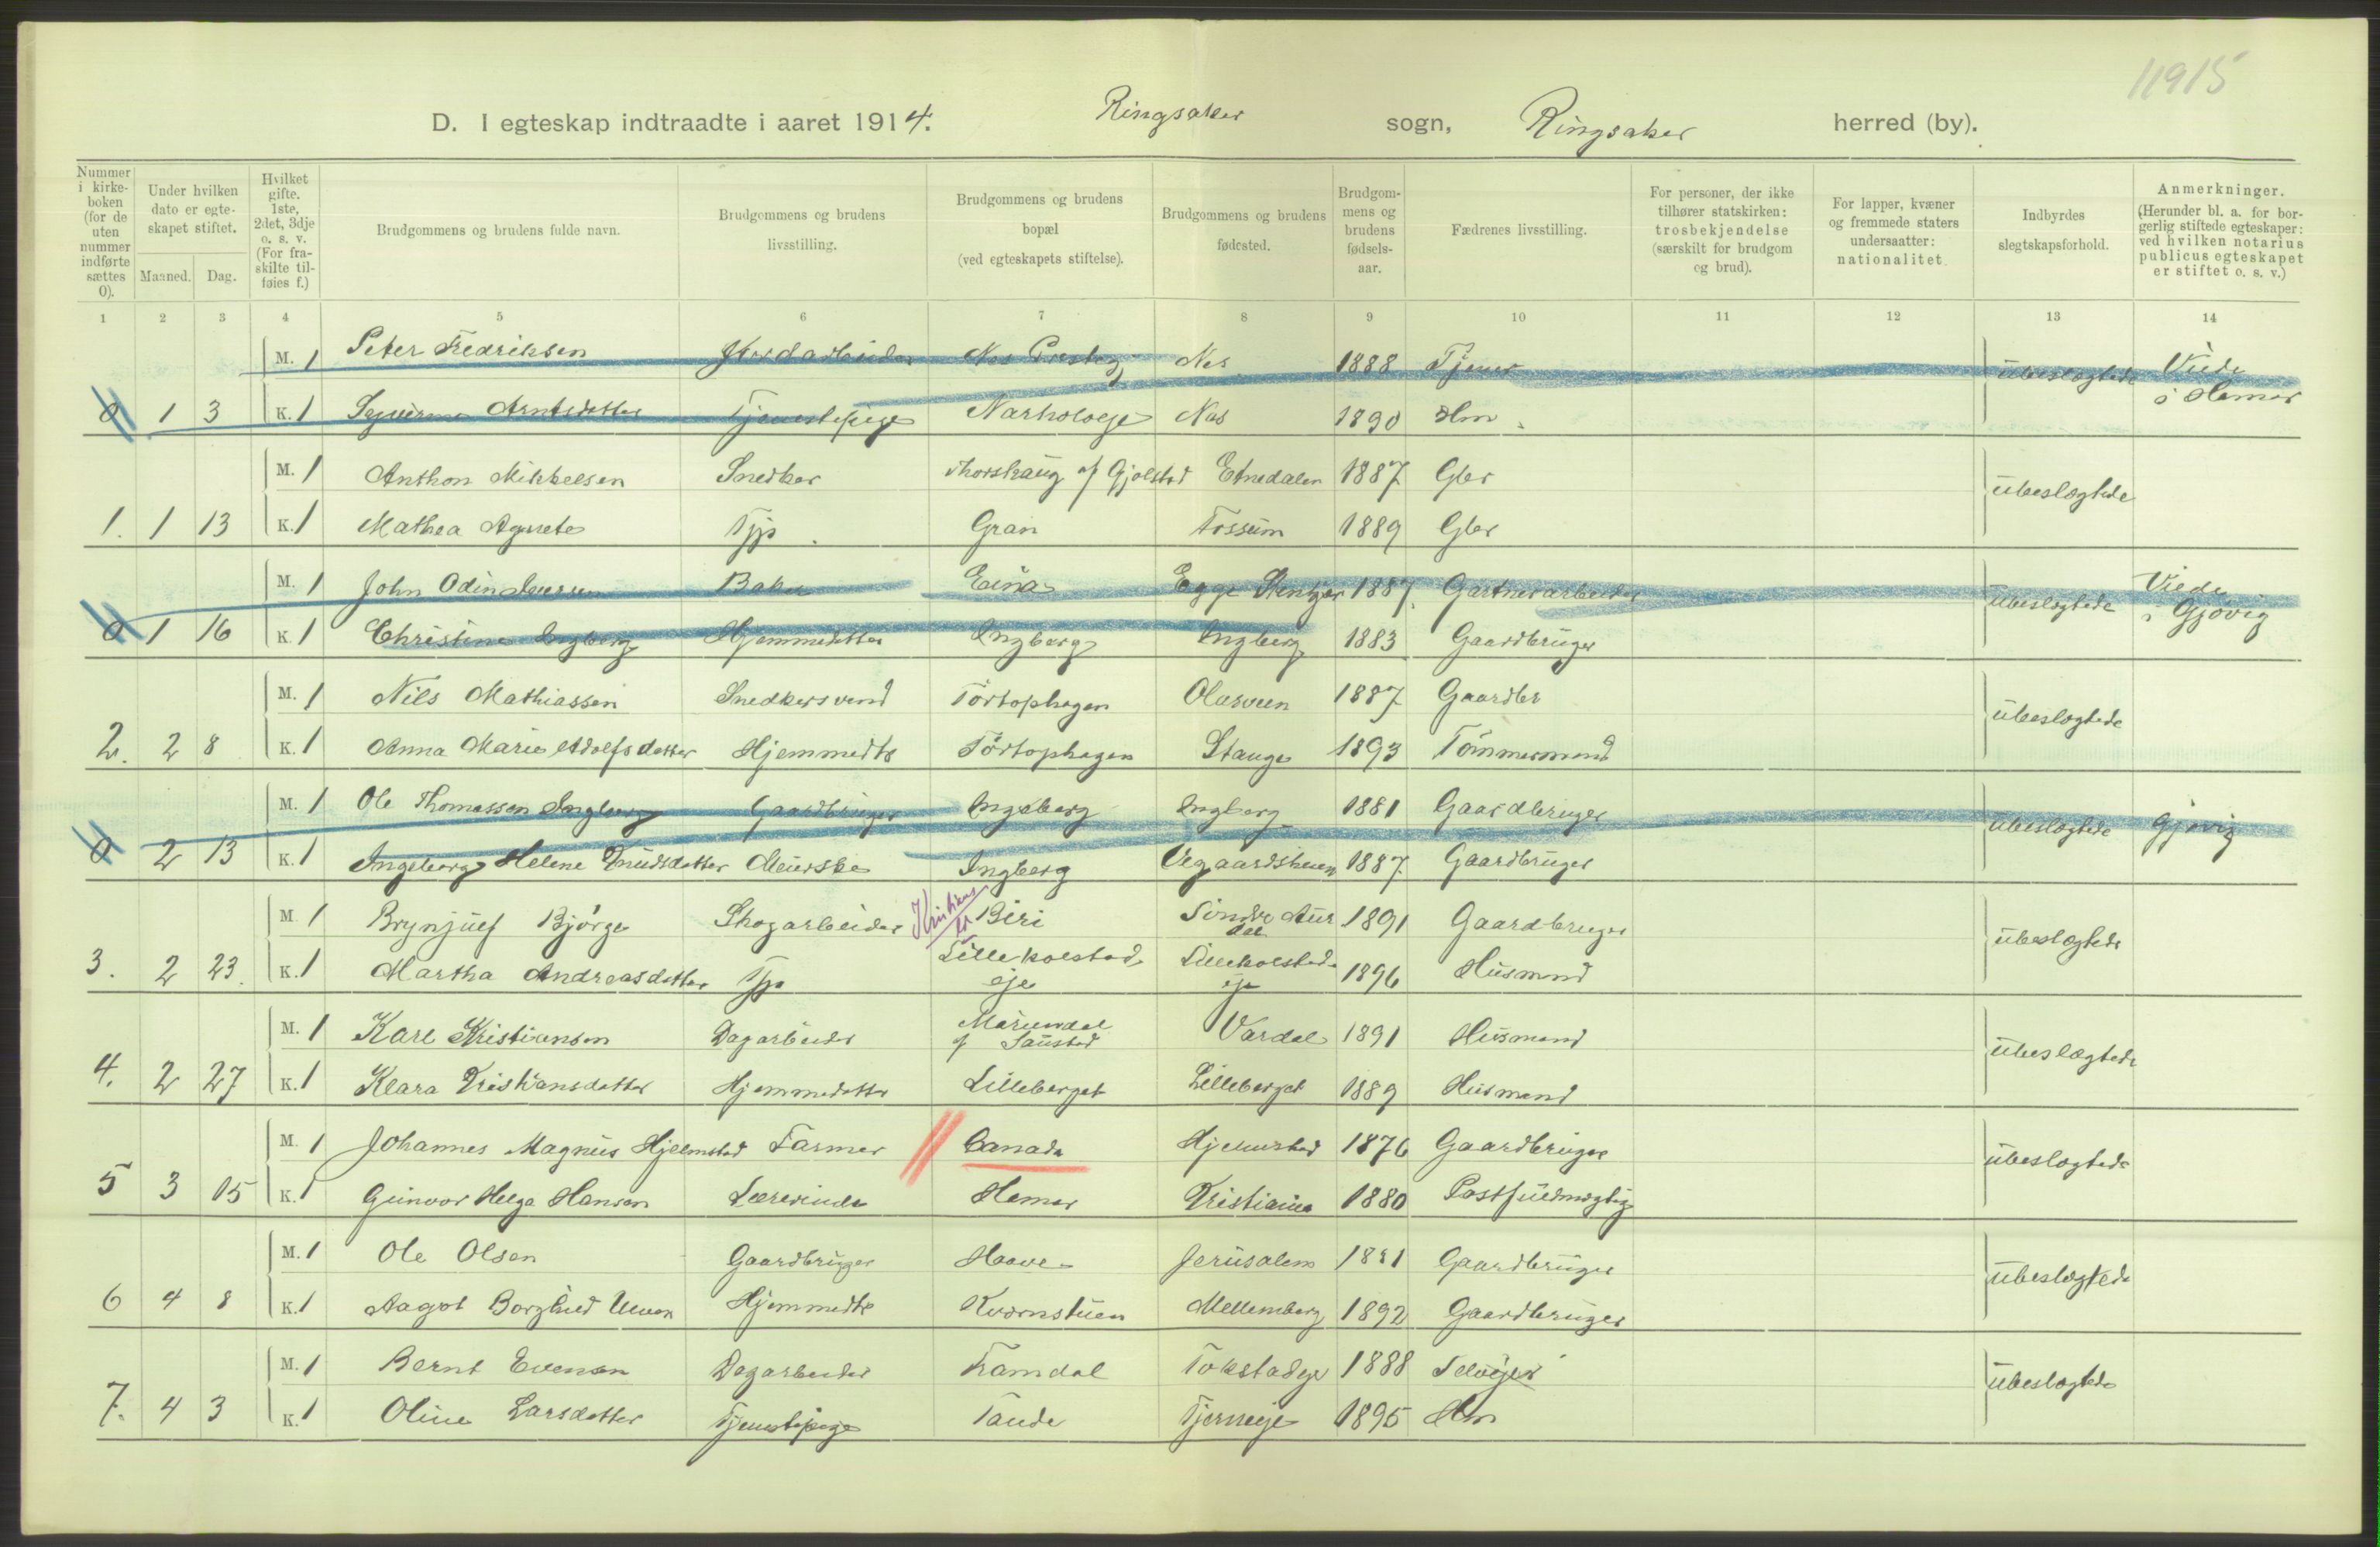 11915
D. I egteskap indtraadte i aaret 1914. Ringsaker sogn, Ringsaker herred (by).
Nummer i kirke-boken (for de uten nummer indførte sættes 0).
Under hvilken dato er egte-skapet stiftet.
Maaned. Dag.
Hvilket gifte. 1ste, 2det, 3dje o. s. v. (For fra-skilte til-føies f.)
Brudgommens og brudens fulde navn.
Brudgommens og brudens livsstilling.
Brudgommens og brudens bopæl (ved egteskapets stiftelse).
Brudgommens og brudens fødested.
Brudgom-mens og brudens fødsels-aar.
Fædrenes livsstilling.
For personer, der ikke tilhører statskirken: trosbekjendelse (særskilt for brudgom og brud).
For lapper, kvæner og fremmede staters undersaatter: nationalitet.
Indbyrdes slegtskapsforhold.
Anmerkninger. (Herunder bl. a. for bor-gerlig stiftede egteskaper: ved hvilken notarius publicus egteskapet er stiftet o. s. v.)
1 2 3 4 5 6 7 8 9 10 11 12 13 14
M. 1 Peter Fredriksen Jordarbeider Nes Prestegj Nes 1888 Tjener ubeslegtede Viede i Hamar
0 1 3 K. 1 Arntsdatter Tjenestepige Nes 1890 Hm.
M. 1 Anthon Mikkelsen Snedker Thorshaug af Gjølstad Etnedalen 1887 Gbr ubeslegtede
1. 1 13 K. 1 Mathea Agnete Tjp. Gran Fossum 1889 Gbr
M. 1 John Odin Baker Eina Egge Stenkjær 1887. Gartnerarbeider ubeslegtede Viede i Gjøvig
0 1 16 K. 1 Christine Ingberg Hjemmedatter Ingberg Ingberg 1883 Gaardbruger
M. 1 Nils Mathiassen Snedkersvend Tørtophagen Olasveen 1887 Gaardbr ubeslegtede
2. 2 8 K. 1 Anna Marie Adolfsdatter Hjemmedtr Tørtophagen Stange 1893 Tømmermand
M. 1 Ole Thomassen Ingberg Gaardbruger Ingeberg Ingberg 1881 Gaardbruger ubeslegtede Gjøvig
0 2 13 K. 1 Ingeborg Helene Knudsdatter Meierske Ingberg Vegaardsheien 1887. Gaardbruger
M. 1 Brynjulf Bjørge Skogarbeider Biri Søndre Aurdal 1891 Gaardbruger ubeslegtede
3. 2 23. K. 1 Martha Andreasdatter Tjp Lillekolstad eje Lillekolstad eje 1896 Husmand
M. 1 Karl Kristiansen Dagarbeider Mariendal af Saustad Vardal 1891 Husmand ubeslegtede
4. 2 27 K. 1 Klara Kristiansdatter Hjemmedatter Lilleberget Lilleberget 1889 Husmand
M. 1 Johannes Magnus Hjelmstad Farmer Canada Hjelmstad 1876 Gaardbruger ubeslegtede
5 3 15 K. 1 Gunvor Helga Hansen Lærerinde Hamar Kristiania 1880 Postfuldmægtig
M. 1 Ole Olsen Gaardbruger Haave Jerusalem 1881 Gaardbruger ubeslegtede
6 4 8 K. 1 Aagot Borghild Hjemmedtr Kvernstuen Mellemberg 1892 Gaardbruger
M. 1 Bernt Evensen Dagarbeider Framdal Tokstadeje 1888 Selvejer ubeslegtede
7. 4 3 K. 1 Oline Larsdatter Tjenestepige Tande Tjerneeje 1895 Hm